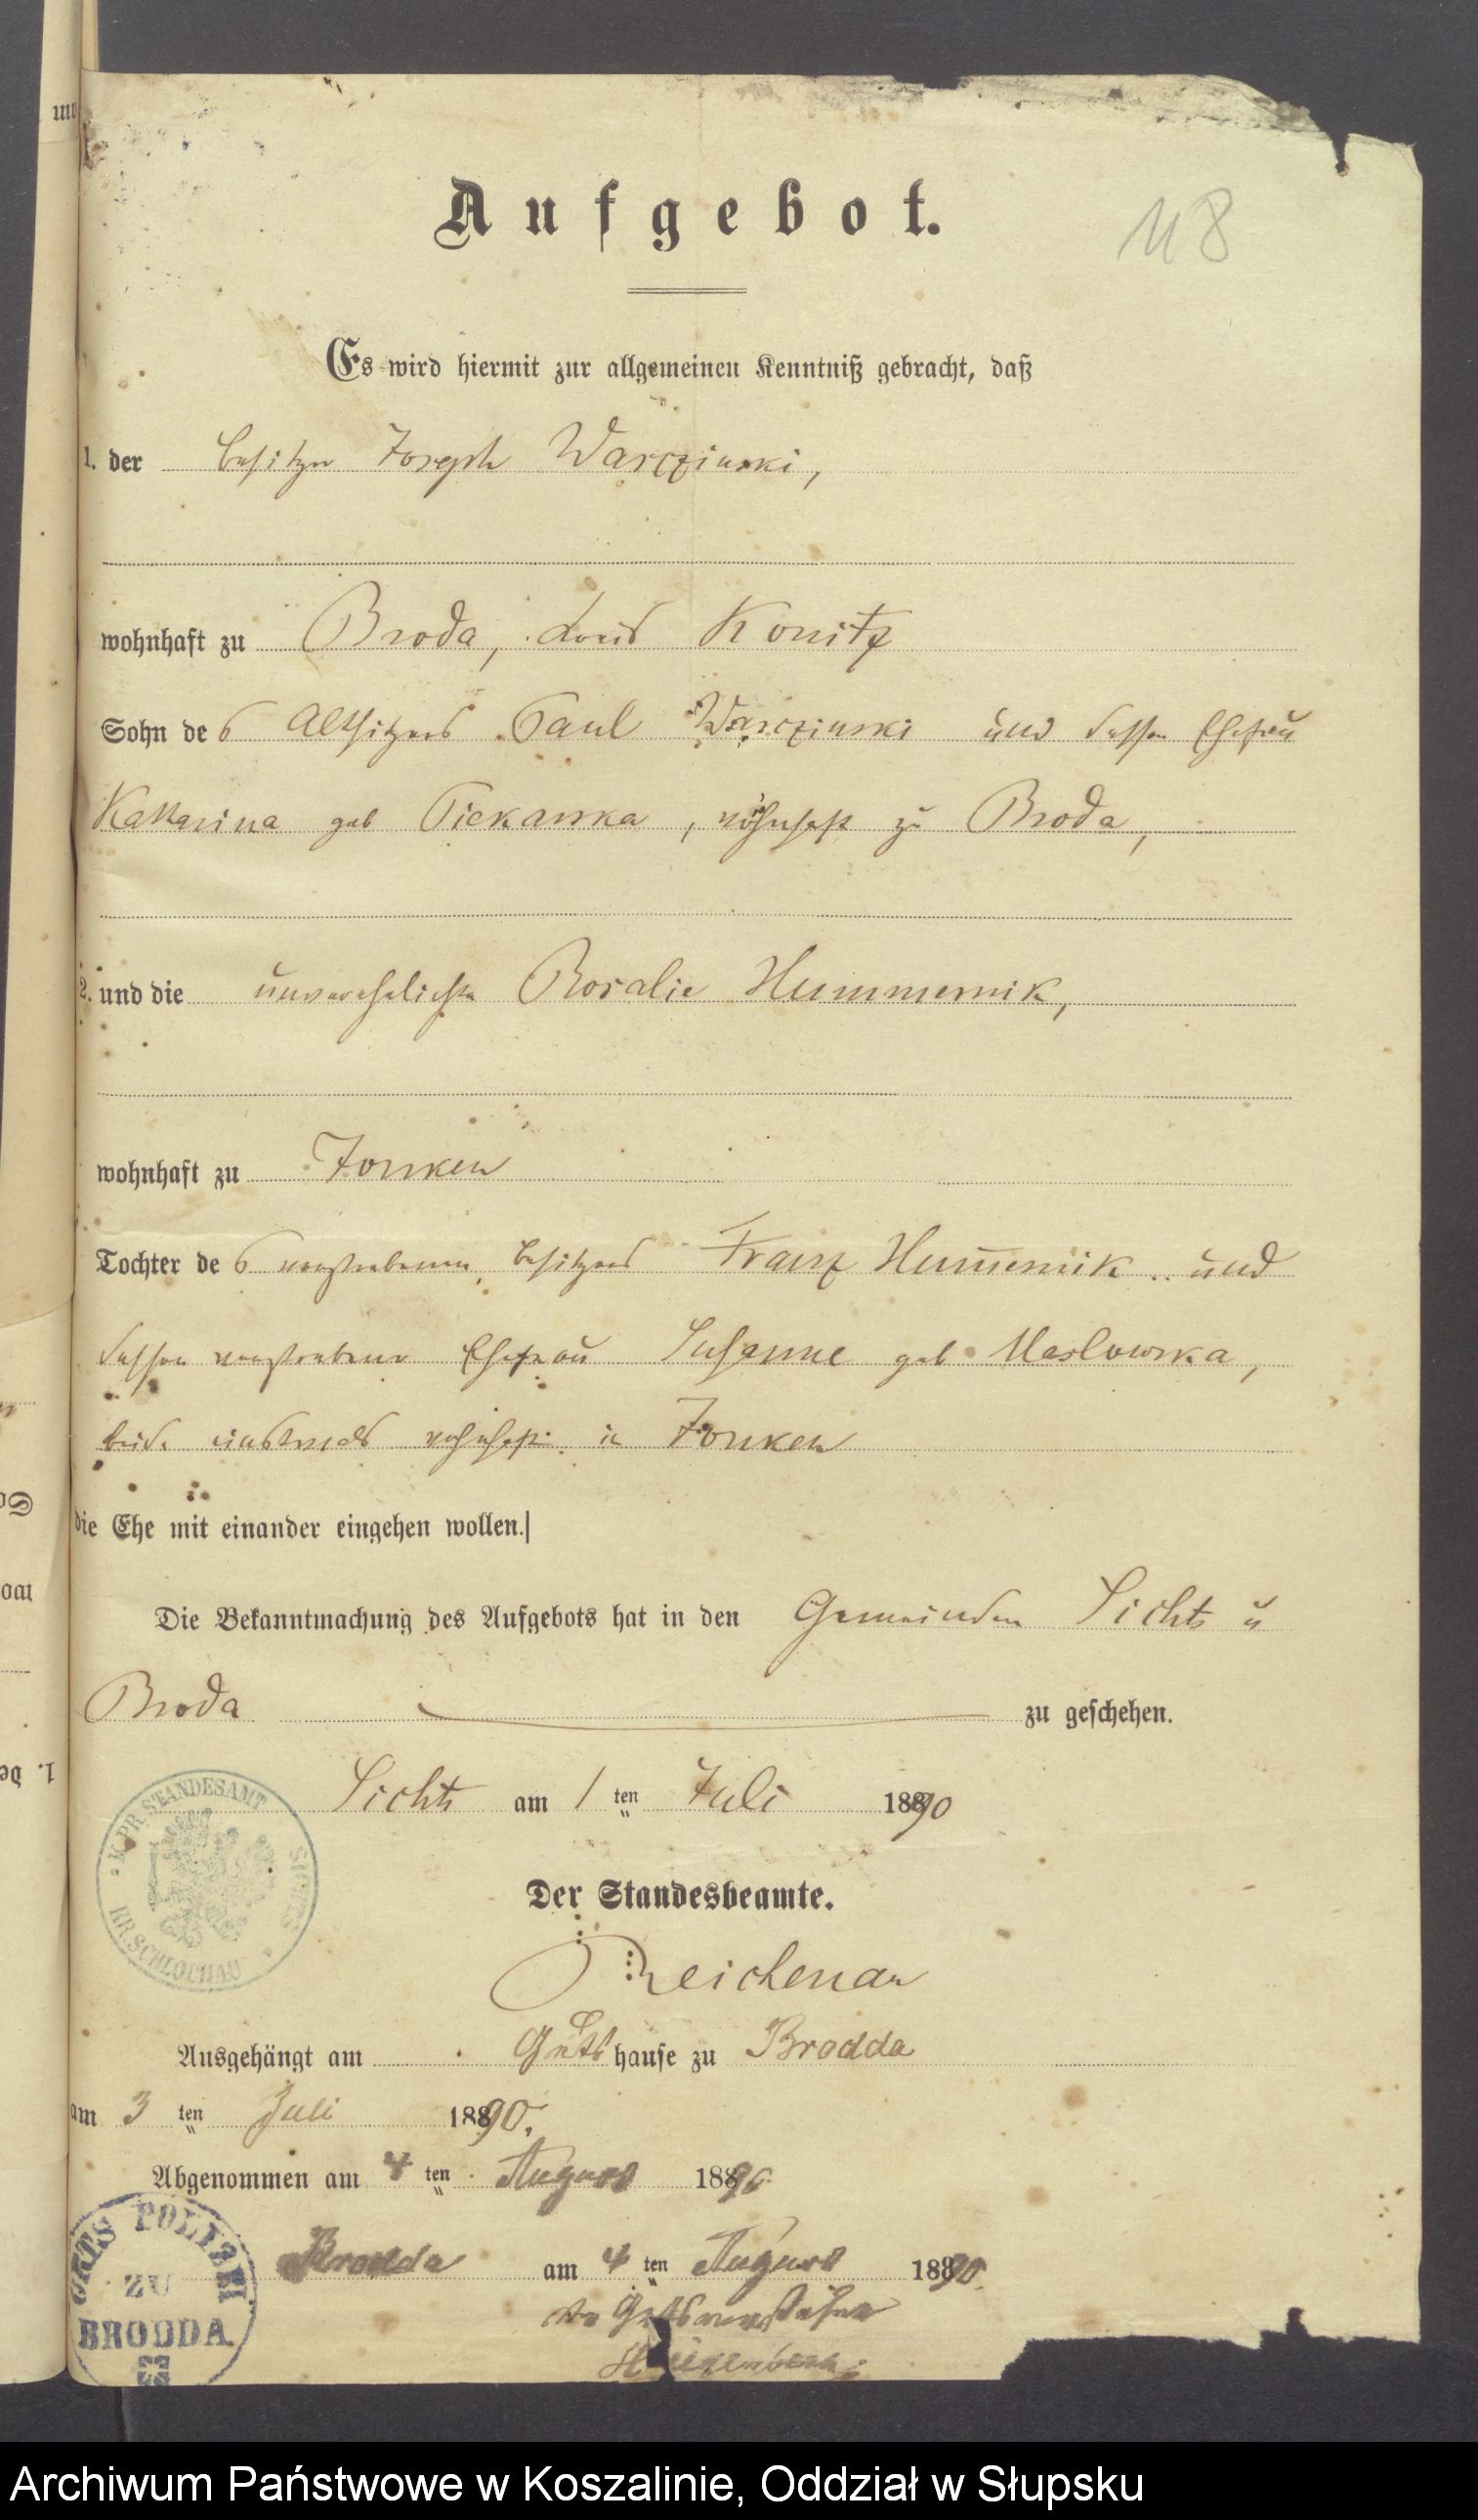 Aufgebot.
118
Es wird hiermit zur allgemeinen Kenntniß gebracht, daß
1. der Besitzer Joseph Warczinski,
wohnhaft zu Broda, Kreis Konitz
Sohn des Altsitzers Paul Warczinski und dessen Ehefrau
Katharina geb Piekarska, wohnhaft zu Broda,
2. und die unverehelichte Rosalie Hummernik,
wohnhaft zu Jonken
Tochter des verstorbenen Besitzers Franz Hum̅ernik und
dessen verstorbene Ehefrau Susanne geb Maslowska,
beide wohnhaft in Jonken
die Ehe mit einander eingehen wollen.
Die Bekanntmachung des Aufgebots hat in den Gemeinden Sichts u
Broda zu geschehen.
Sichts am 1ten Juli 1890
K. PR. STANDESAMT SICHTS
KR. SCHLOCHAU
Der Standesbeamte.
Reichenau
Ausgehängt am Gutshause zu Brodda
am 3ten Juli 1890.
Abgenommen am 4ten August 1890
Brodda am 4ten August 1890.
Der Gutsvorsteher
ORTS POLIZEI
ZU
BRODDA
Archiwum Państwowe w Koszalinie, Oddział w Słupsku